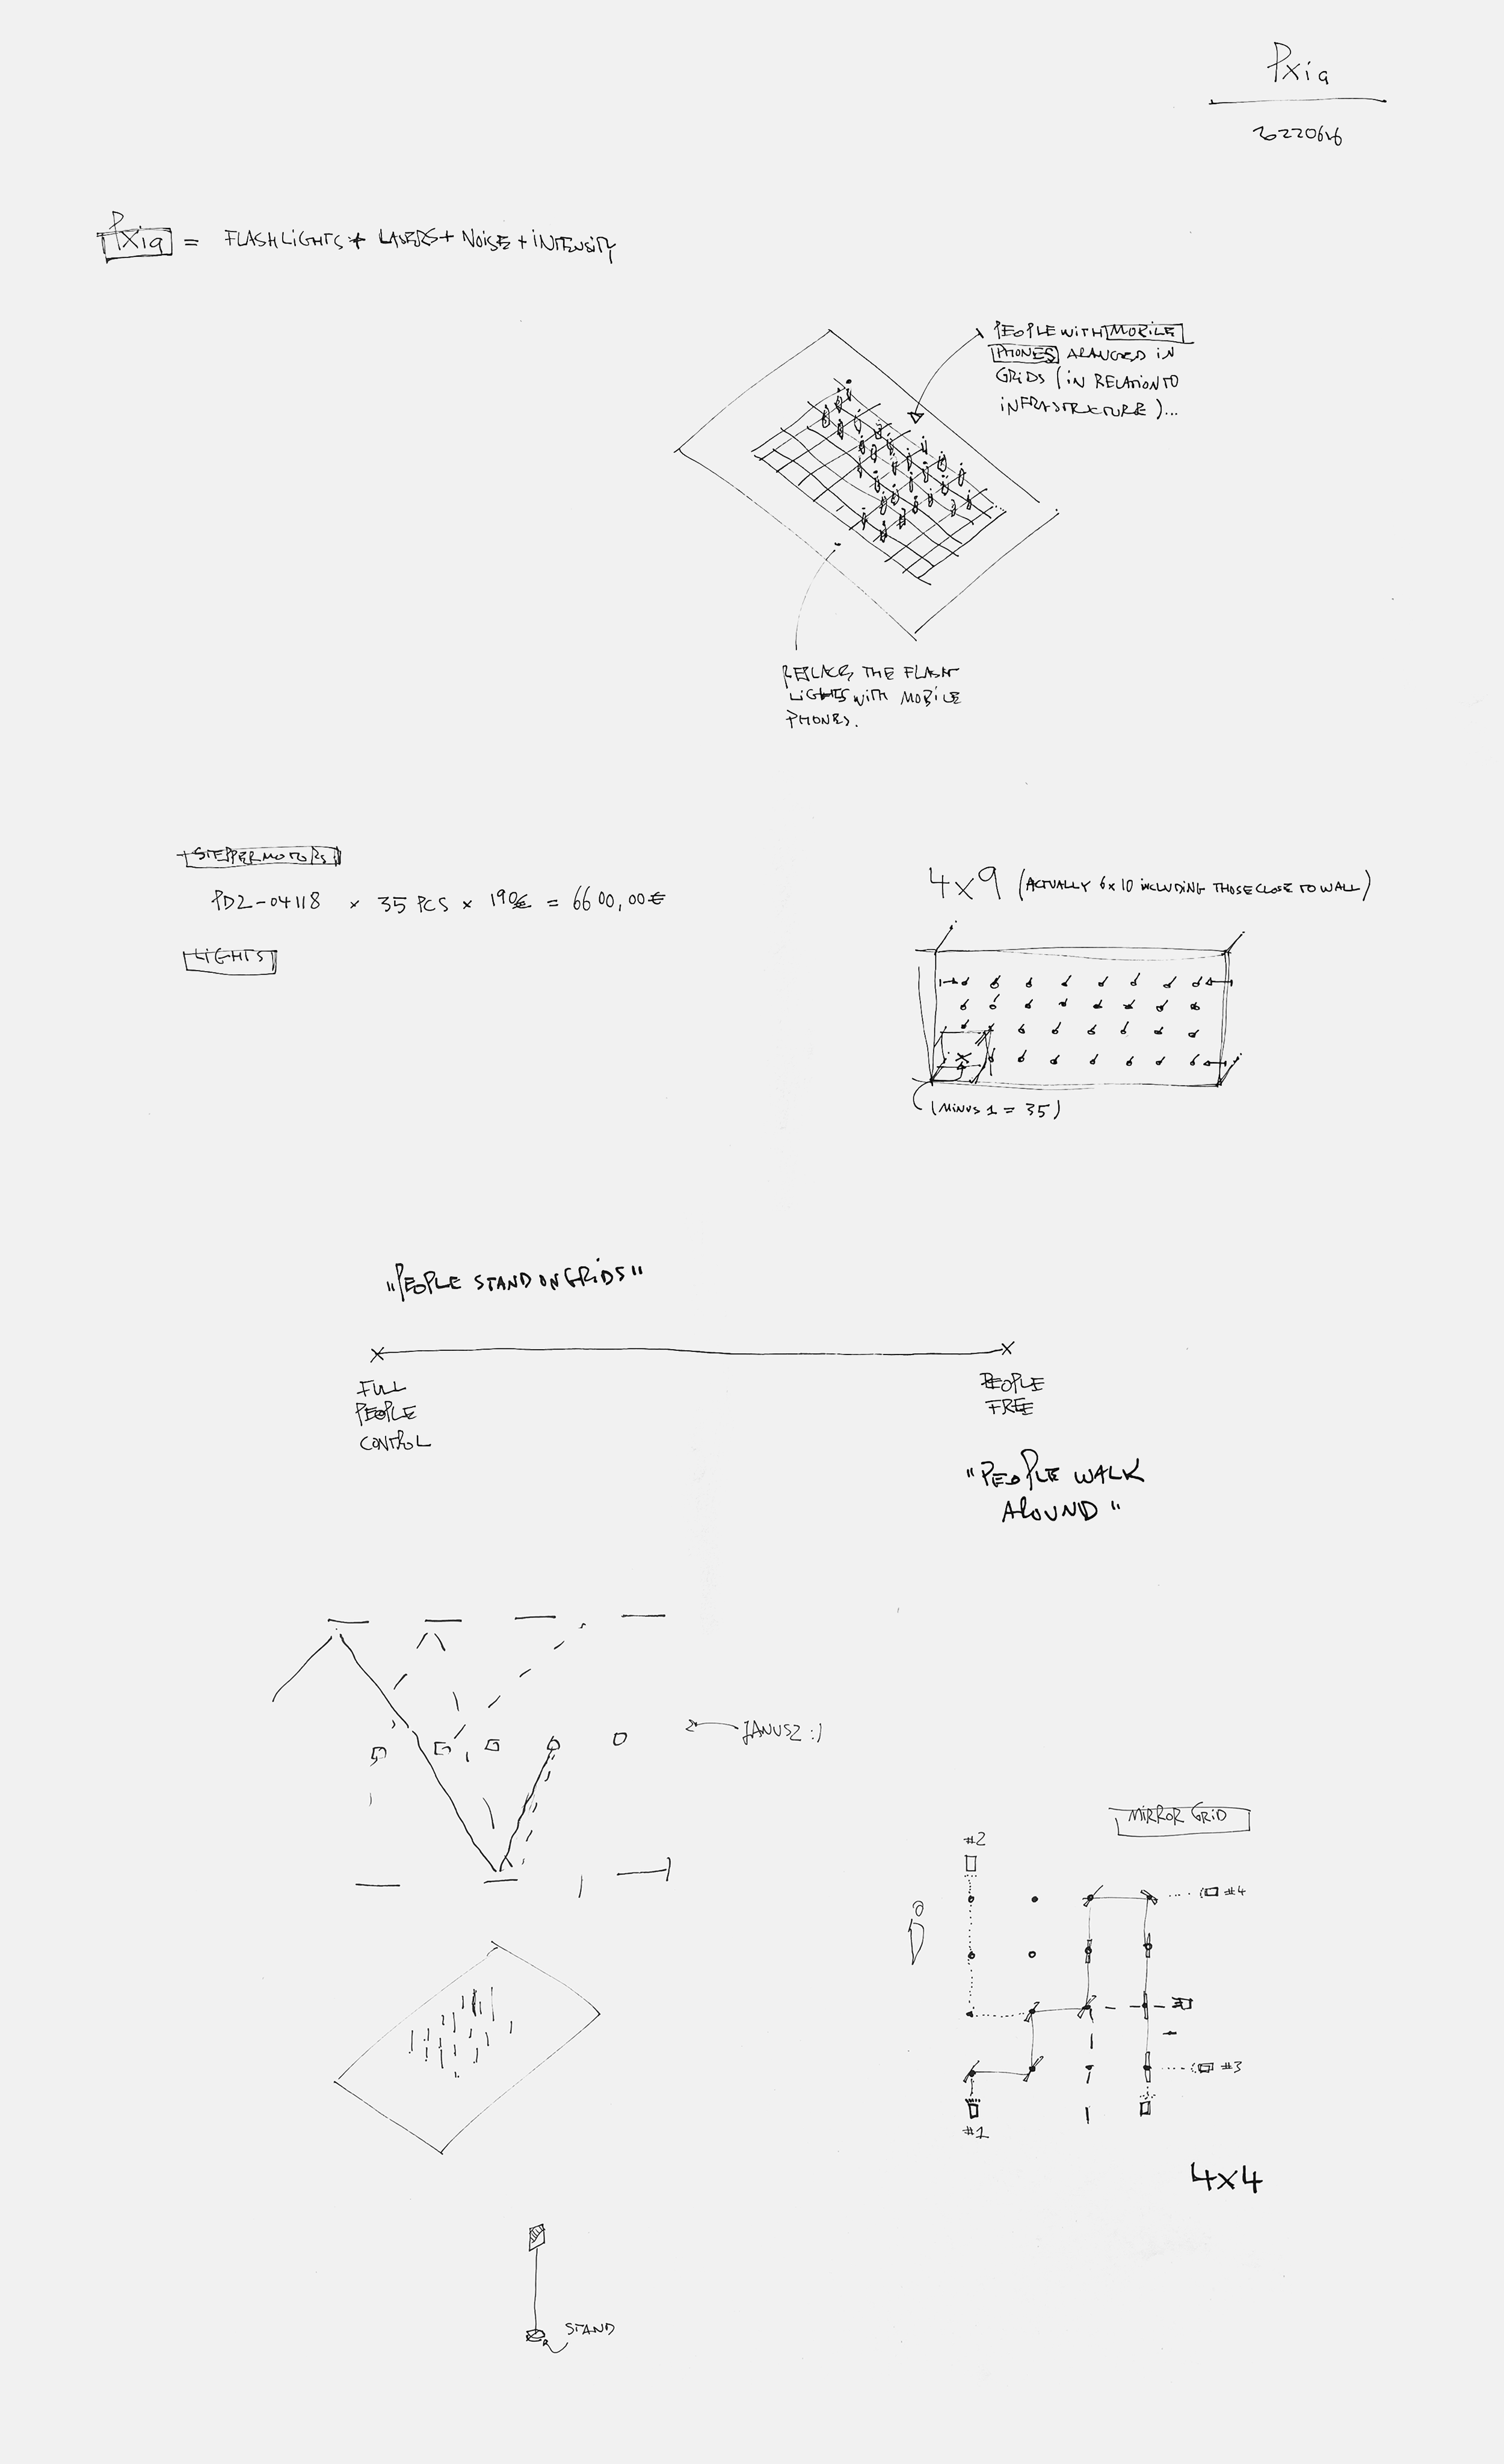 Pxia
20220616
Pxia = FLASHLIGHTS + LASERS + NOISE + INTENSITY
PEOPLE WITH MOBILE
PHONES ARANGED IN
GRIDS (IN RELATION TO
INFRASTRUCTURE)...
REPLACE THE FLASH
LIGHTS WITH MOBILE
PHONES.
STEPPERMOTORS
PD2-04118 × 35 PCS × 190€ = 6600,00€
LIGHTS
4x9 (ACTUALLY 6x10 INCLUDING THOSE CLOSE TO WALL)
(MINUS 1 = 35)
"PEOPLE STAND ON GRIDS"
FULL
PEOPLE
CONTROL
PEOPLE
FREE
"PEOPLE WALK
AROUND"
JANUSZ :)
MIRROR GRID
#2
#4
#3
#1
4x4
STAND